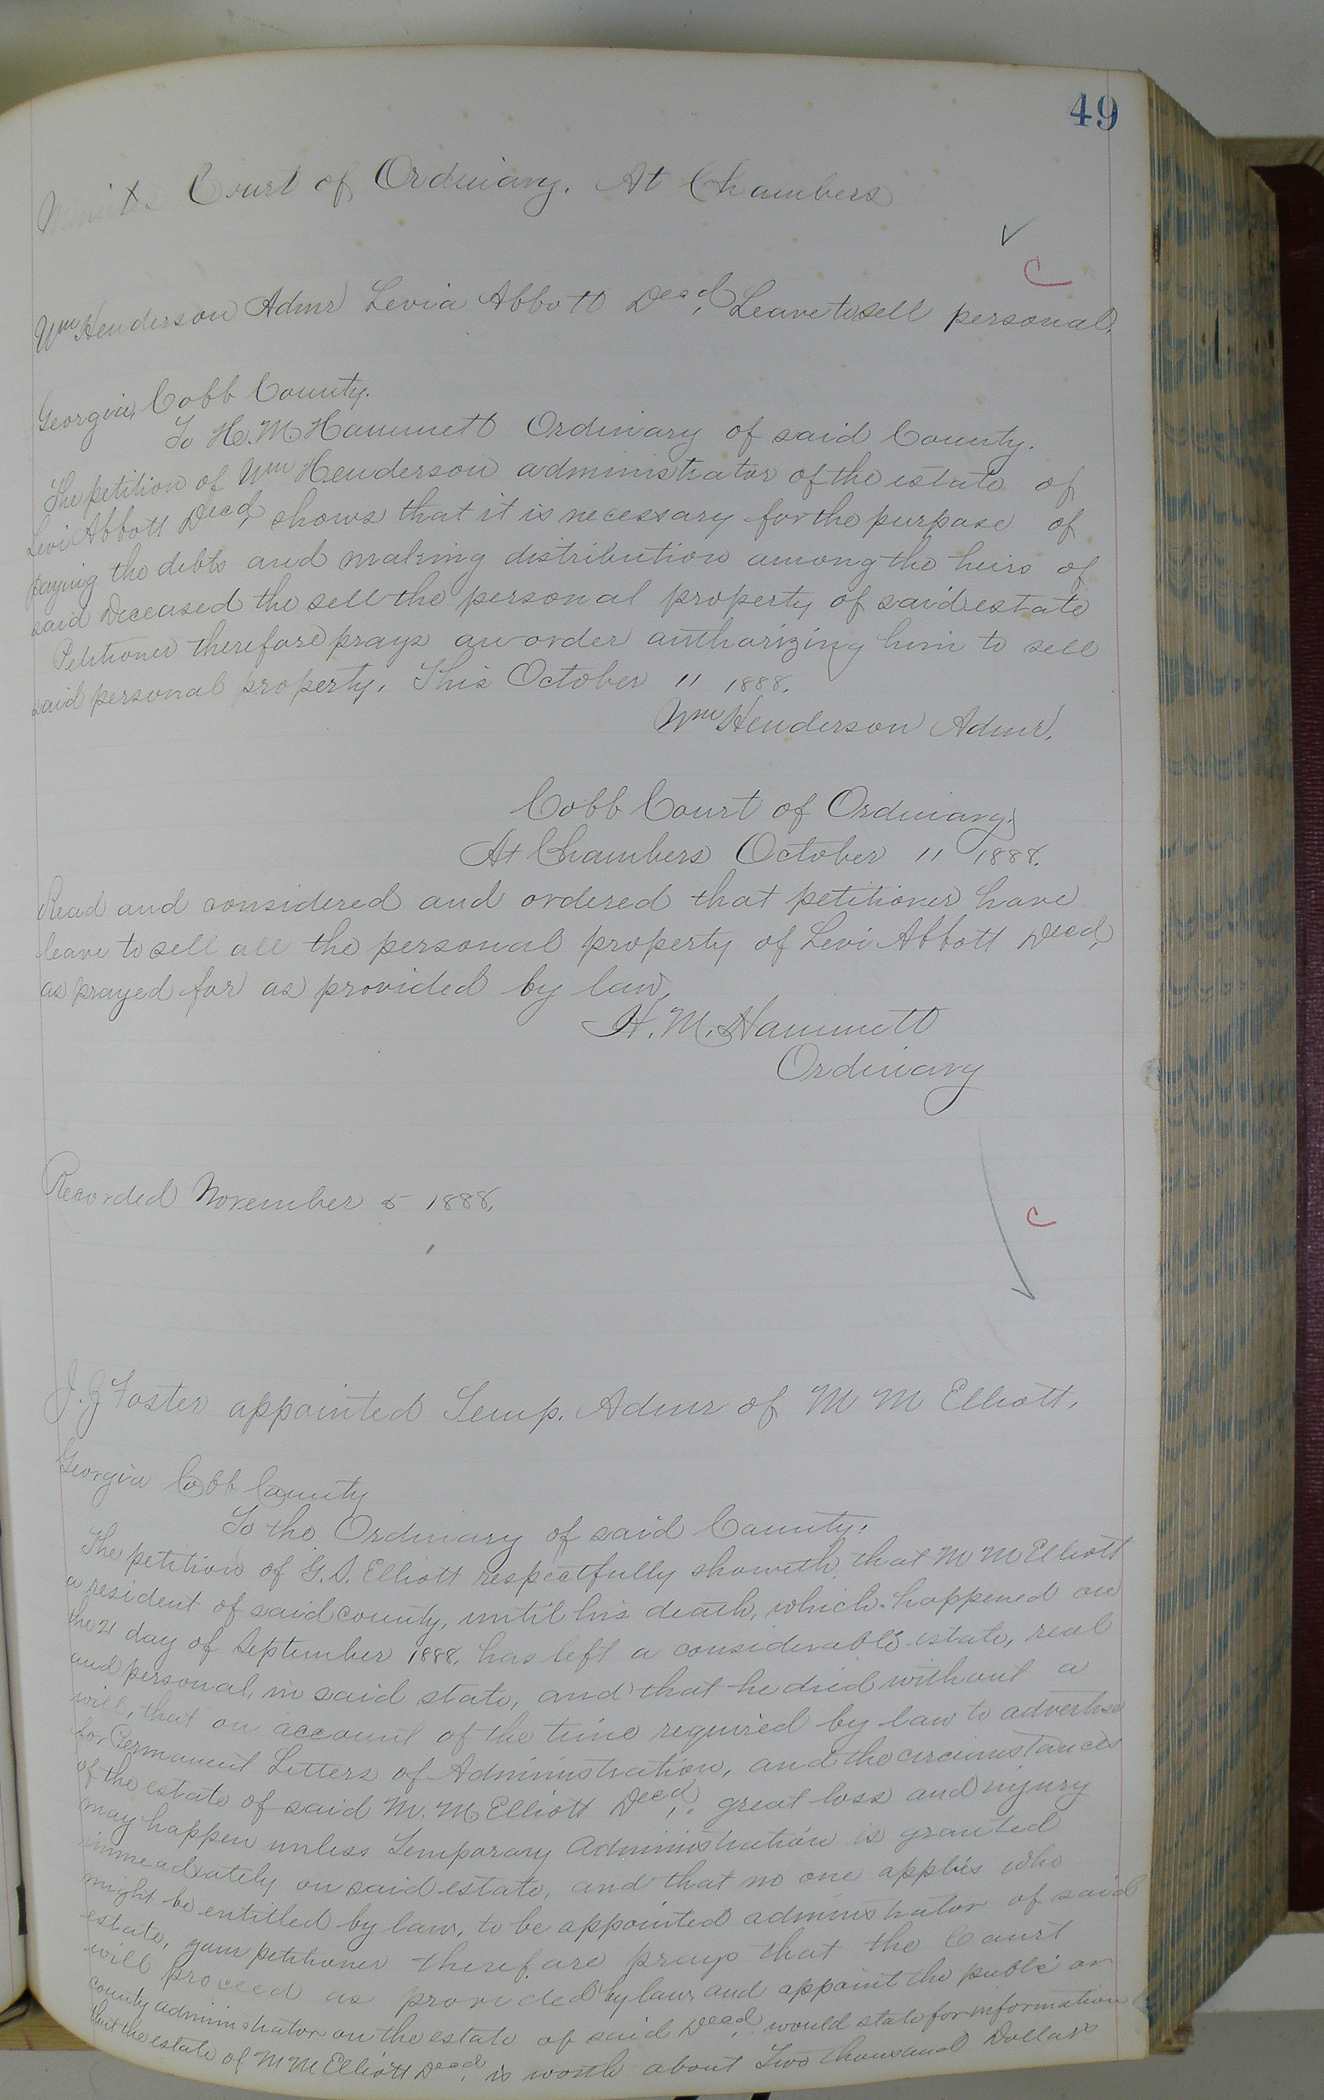 49
Minutes Court of Ordinary. At Chambers
C
Wm Henderson Admr Levia Abbott Decd, Leave to sell personal.
Georgia, Cobb County.
To H. M Hammett Ordinary of said County.
The petition of Wm Henderson administrator of the estate of
Levi Abbott Decd, shows that it is necessary for the purpose of
paying the debts and making distribution among the heirs of
said Deceased the sell the personal property of said estate
Petitioner therefore prays an order authorizing him to sell
said personal property. This October 11 1888.
Wm Henderson Admr.
Cobb Court of Ordinary.
At Chambers October 11 1888.
Read and considered and ordered that petitioner have
leave to sell all the personal property of Levi Abbott Decd,
as prayed for as provided by law,
H. M. Hammett
Ordinary
Recorded November 5 1888.
C
J. Z Foster appointed Temp. Admr of M M Elliott.
Georgia Cobb County
To the Ordinary of said County.
The petition of G. S. Elliott respectfully showeth, that M M Elliott
a resident of said county, until his death, which happened on
the 21 day of September 1888, has left a considerable estate, real
and personal, in said state, and that he died without a
will, that on account of the time required by law to advertise
for Permanent Letters of Administration, and the circumstances
of the estate of said M. M Elliott Decd, great loss and injury
may happen unless Temporary Administration is granted
immeadiately on said estate, and that no one applies who
might be entitled by law, to be appointed administrator of said
estate, your petitioner therefore prays that the Court
will proceed as provided by law, and appoint the public or
county administrator on the estate of said Decd, would state for information
that the estate of M M Elliott Decd, is worth about Two thousand Dollars